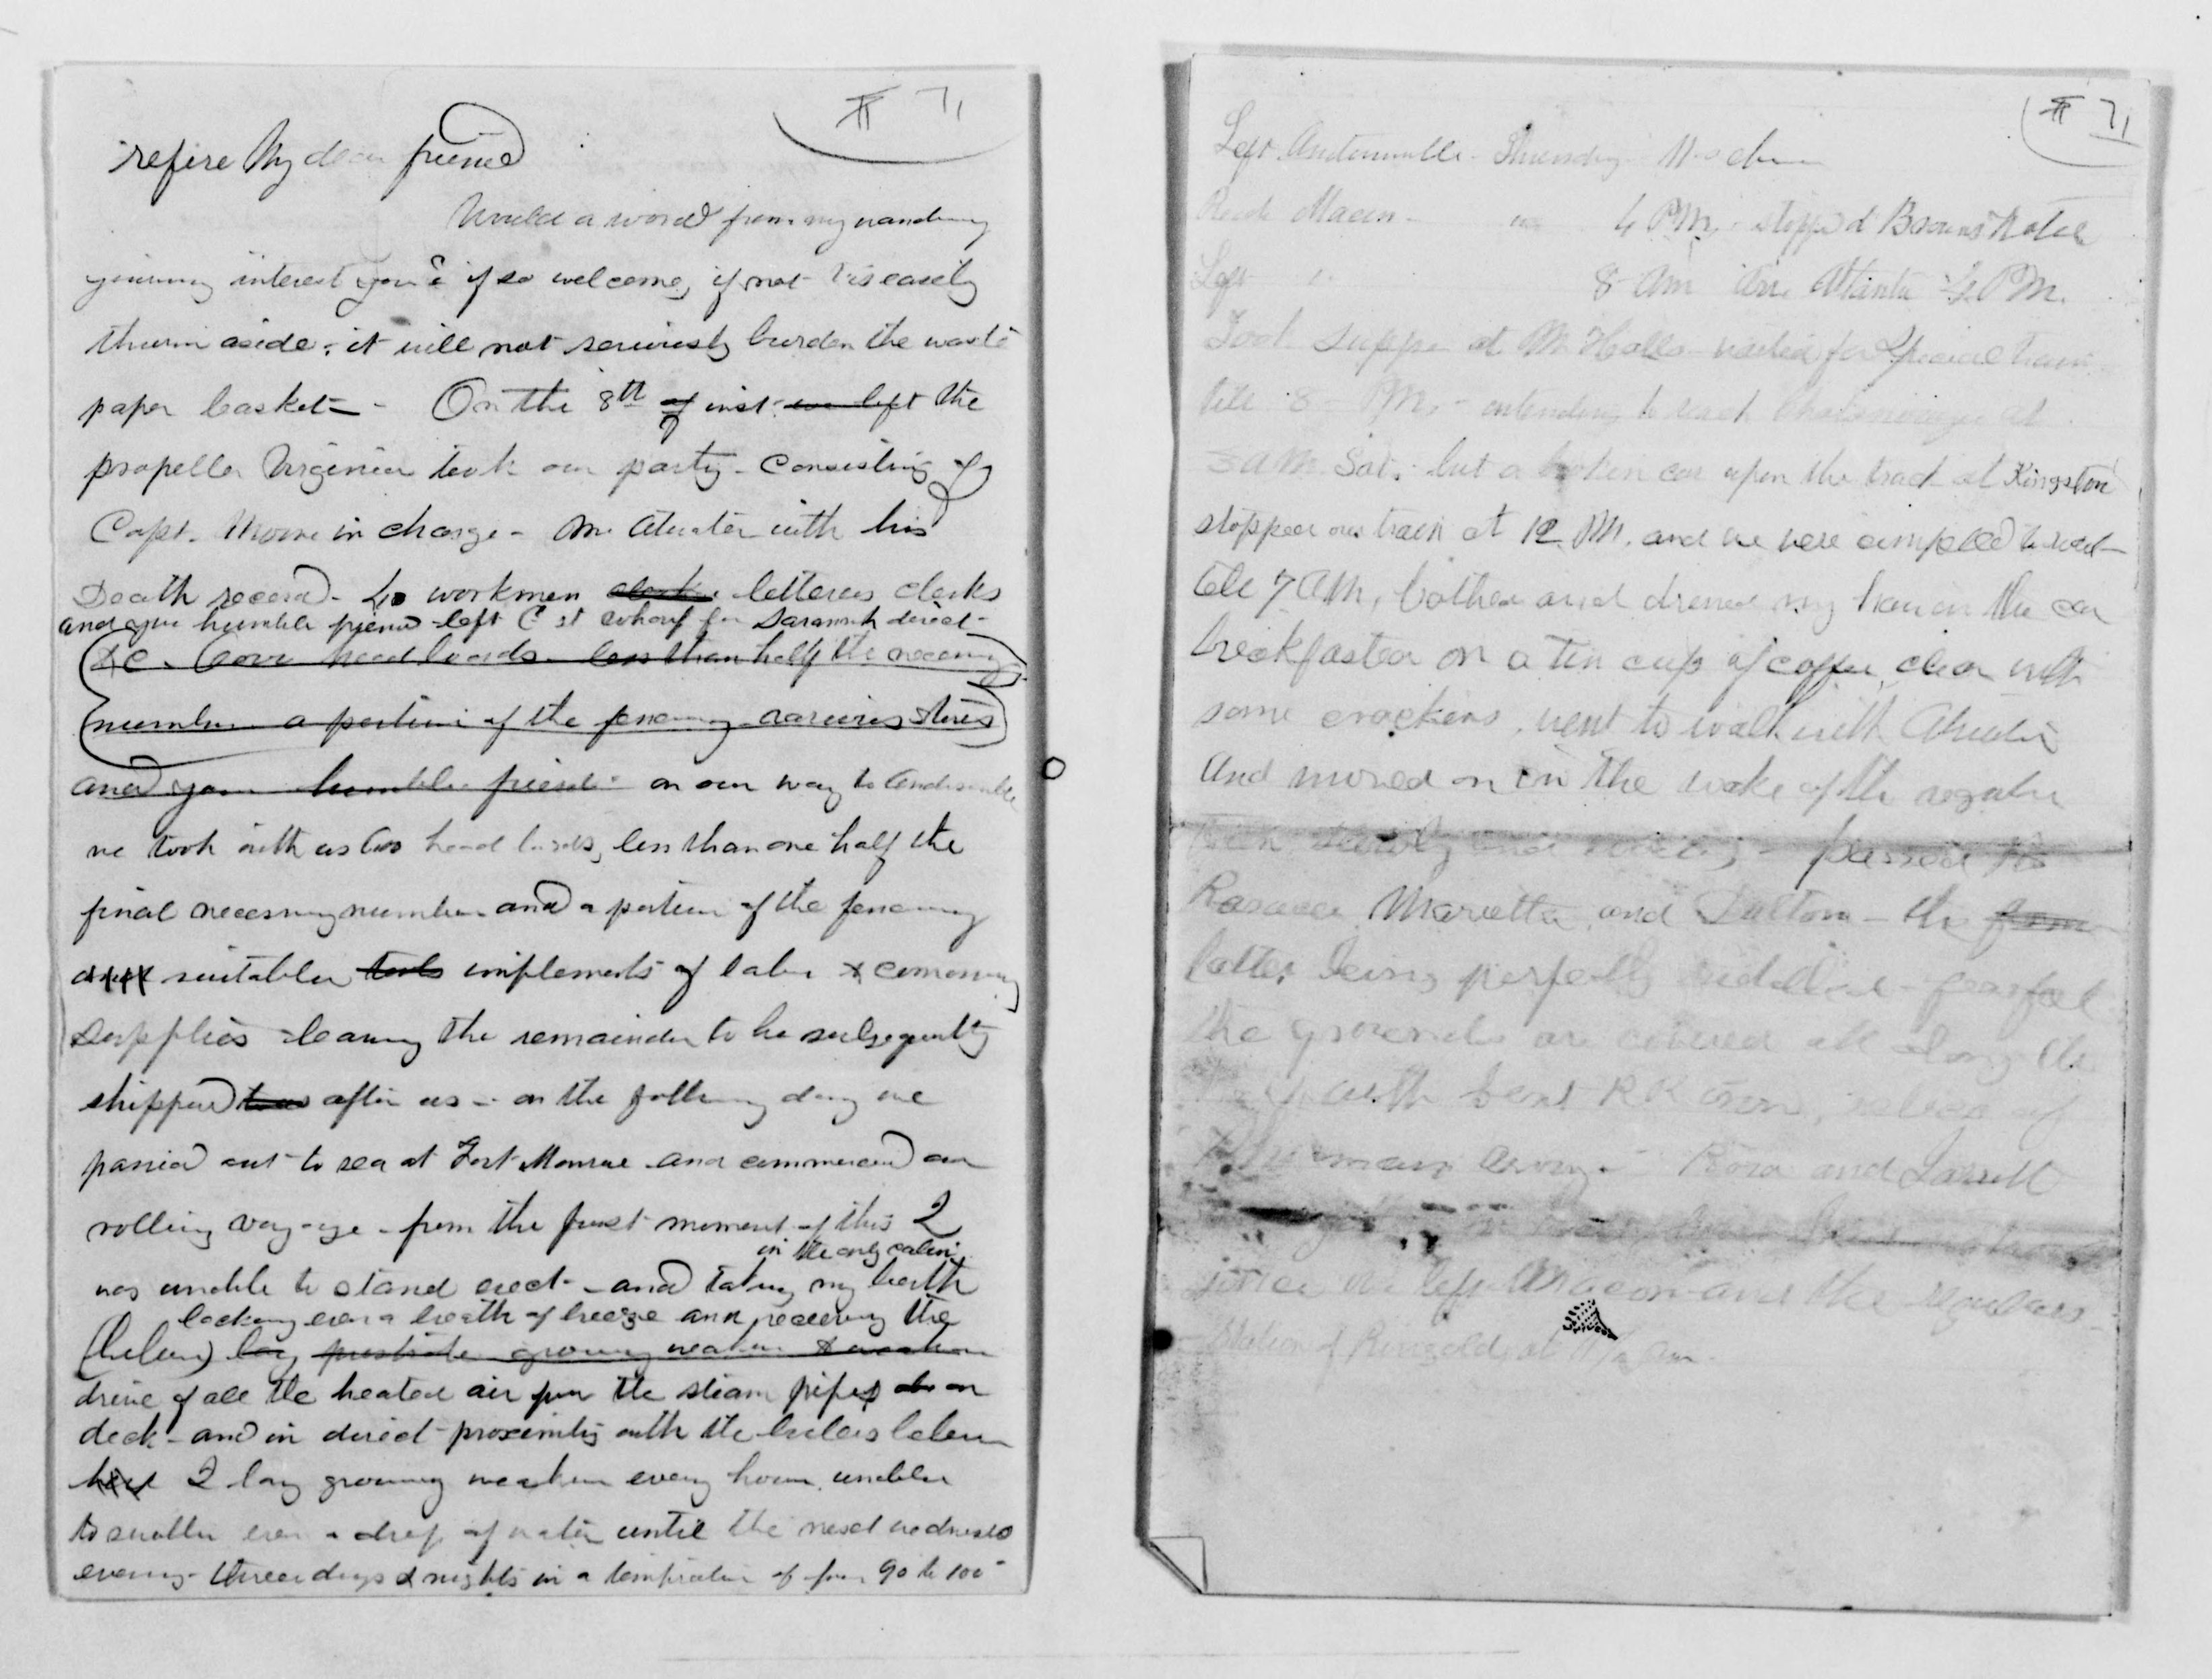 II 71
refire My dear friend
Would a word from my wandering
journey interest you? if so welcome, if not tis easily
thrown aside, it will not seriously burden the waste
paper basket - On the 8th of inst. we left the
propeller Virginia took our party - consisting of
Capt. Moore in charge - Mr. Atwater with his
Death record - 40 workmen clerks letterers clerks
and your humble friend left C st wharf for Savannah direct -
&c. head boards less than half the necessary
number a portion of the fencing various stores
and your humble friend on our way to Andersonville
we took with us head boards, less than one half the
final necessary number and a portion of the fencing
suitable tools implements of labor & commissary
supplies leaving the remainder to be subsequently
shipped after us - on the following day we
passed out to sea at Fort Monroe and commenced our
rolling voy-age - from the first moment of this I
in the only cabin
was unable to stand erect - and taking my berth
lacking even a breath of breeze and receiving the
(below) lay prostrate growing weaker &
drive of all the heated air from the steam pipes on
deck - and in direct proximity with the boilers below
here I lay growing weaker every hour unable
to swallow even a drop of water until the next wednesday
evening - three days & nights in a temperature of from 90 to 100°
II 71
Left Andersonville - Thursday 11 oclock
Reach Macon - 4 PM, - stopped Browns Hotel
Left " 8 am Arr. Atlanta PM.
Took supper at Mr Halls - waited for special train
till 8 PM, - intending to reach Chattanooga at
3 am Sat. but a broken car upon the track at Kingston
stopped our train at 12 PM. and we were compelled to wait
till 7 AM, bathed and dressed my hair in the car
breakfasted on a tin cup of coffee, clear with
some crackers, went to walk with Atwater
And moved on in the wake of the regular
train slowly and - passed the
Rasacca Marietta and Dalton - the
latter being perfectly riddled - fearful
the grounds are covered all along the
way with bent RR iron, relics of
Shermans Army - Rosa and Jarrett
since we left Macon and the regulars
Station of Ringold, at 11 1/2 am.